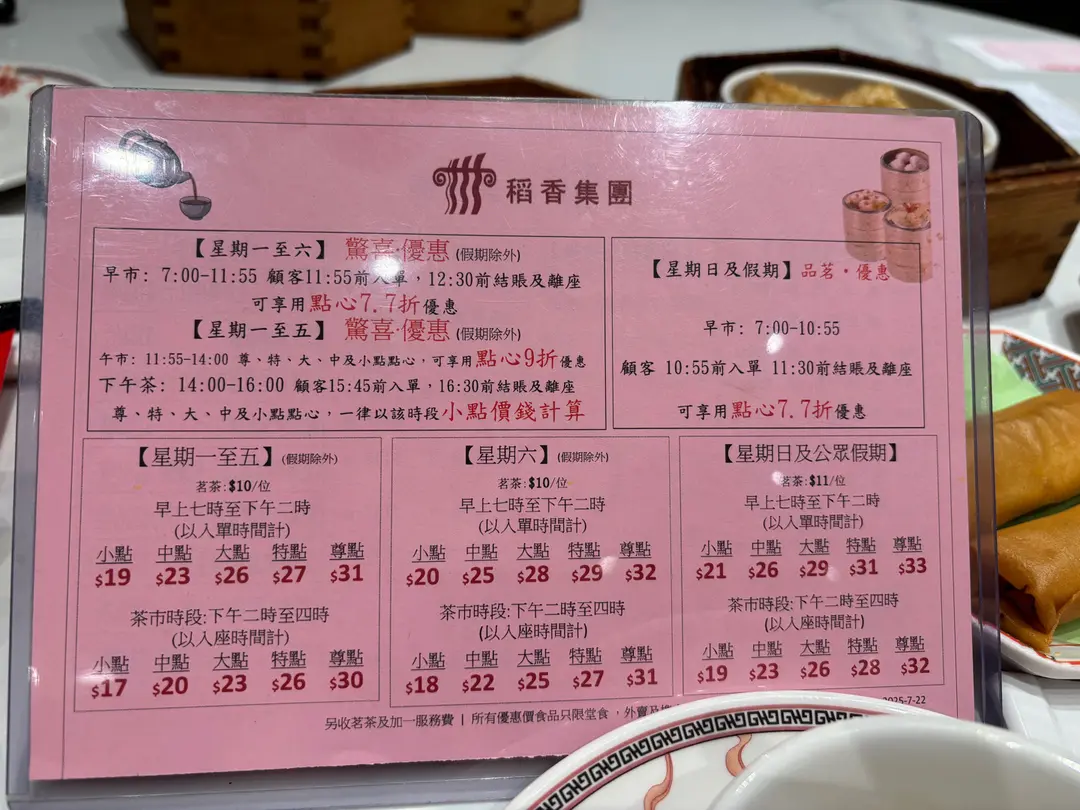 稻香集團
【星期一至六】 驚喜·優惠 (假期除外)
早市: 7:00-11:55 顧客11:55前入單,12:30前結賬及離座
可享用點心7.7折優惠
【星期一至五】 驚喜·優惠 (假期除外)
午市: 11:55-14:00 尊、特、大、中及小點點心,可享用點心9折優惠
下午茶: 14:00-16:00 顧客15:45前入單,16:30前結賬及離座
尊、特、大、中及小點點心,一律以該時段小點價錢計算
【星期日及假期】品茗·優惠
早市: 7:00-10:55
顧客 10:55前入單 11:30前結賬及離座
可享用點心7.7折優惠
【星期一至五】(假期除外)
茗茶:$10/位
早上七時至下午二時
(以入單時間計)
小點 中點 大點 特點 尊點
$19 $23 $26 $27 $31
茶市時段:下午二時至四時
(以入座時間計)
小點 中點 大點 特點 尊點
$17 $20 $23 $26 $30
【星期六】(假期除外)
茗茶:$10/位
早上七時至下午二時
(以入單時間計)
小點 中點 大點 特點 尊點
$20 $25 $28 $29 $32
茶市時段:下午二時至四時
(以入座時間計)
小點 中點 大點 特點 尊點
$18 $22 $25 $27 $31
【星期日及公眾假期】
茗茶:$11/位
早上七時至下午二時
(以入單時間計)
小點 中點 大點 特點 尊點
$21 $26 $29 $31 $33
茶市時段:下午二時至四時
(以入座時間計)
小點 中點 大點 特點 尊點
$19 $23 $26 $28 $32
另收茗茶及加一服務費 | 所有優惠價食品只限堂食,外賣及
2025-7-22